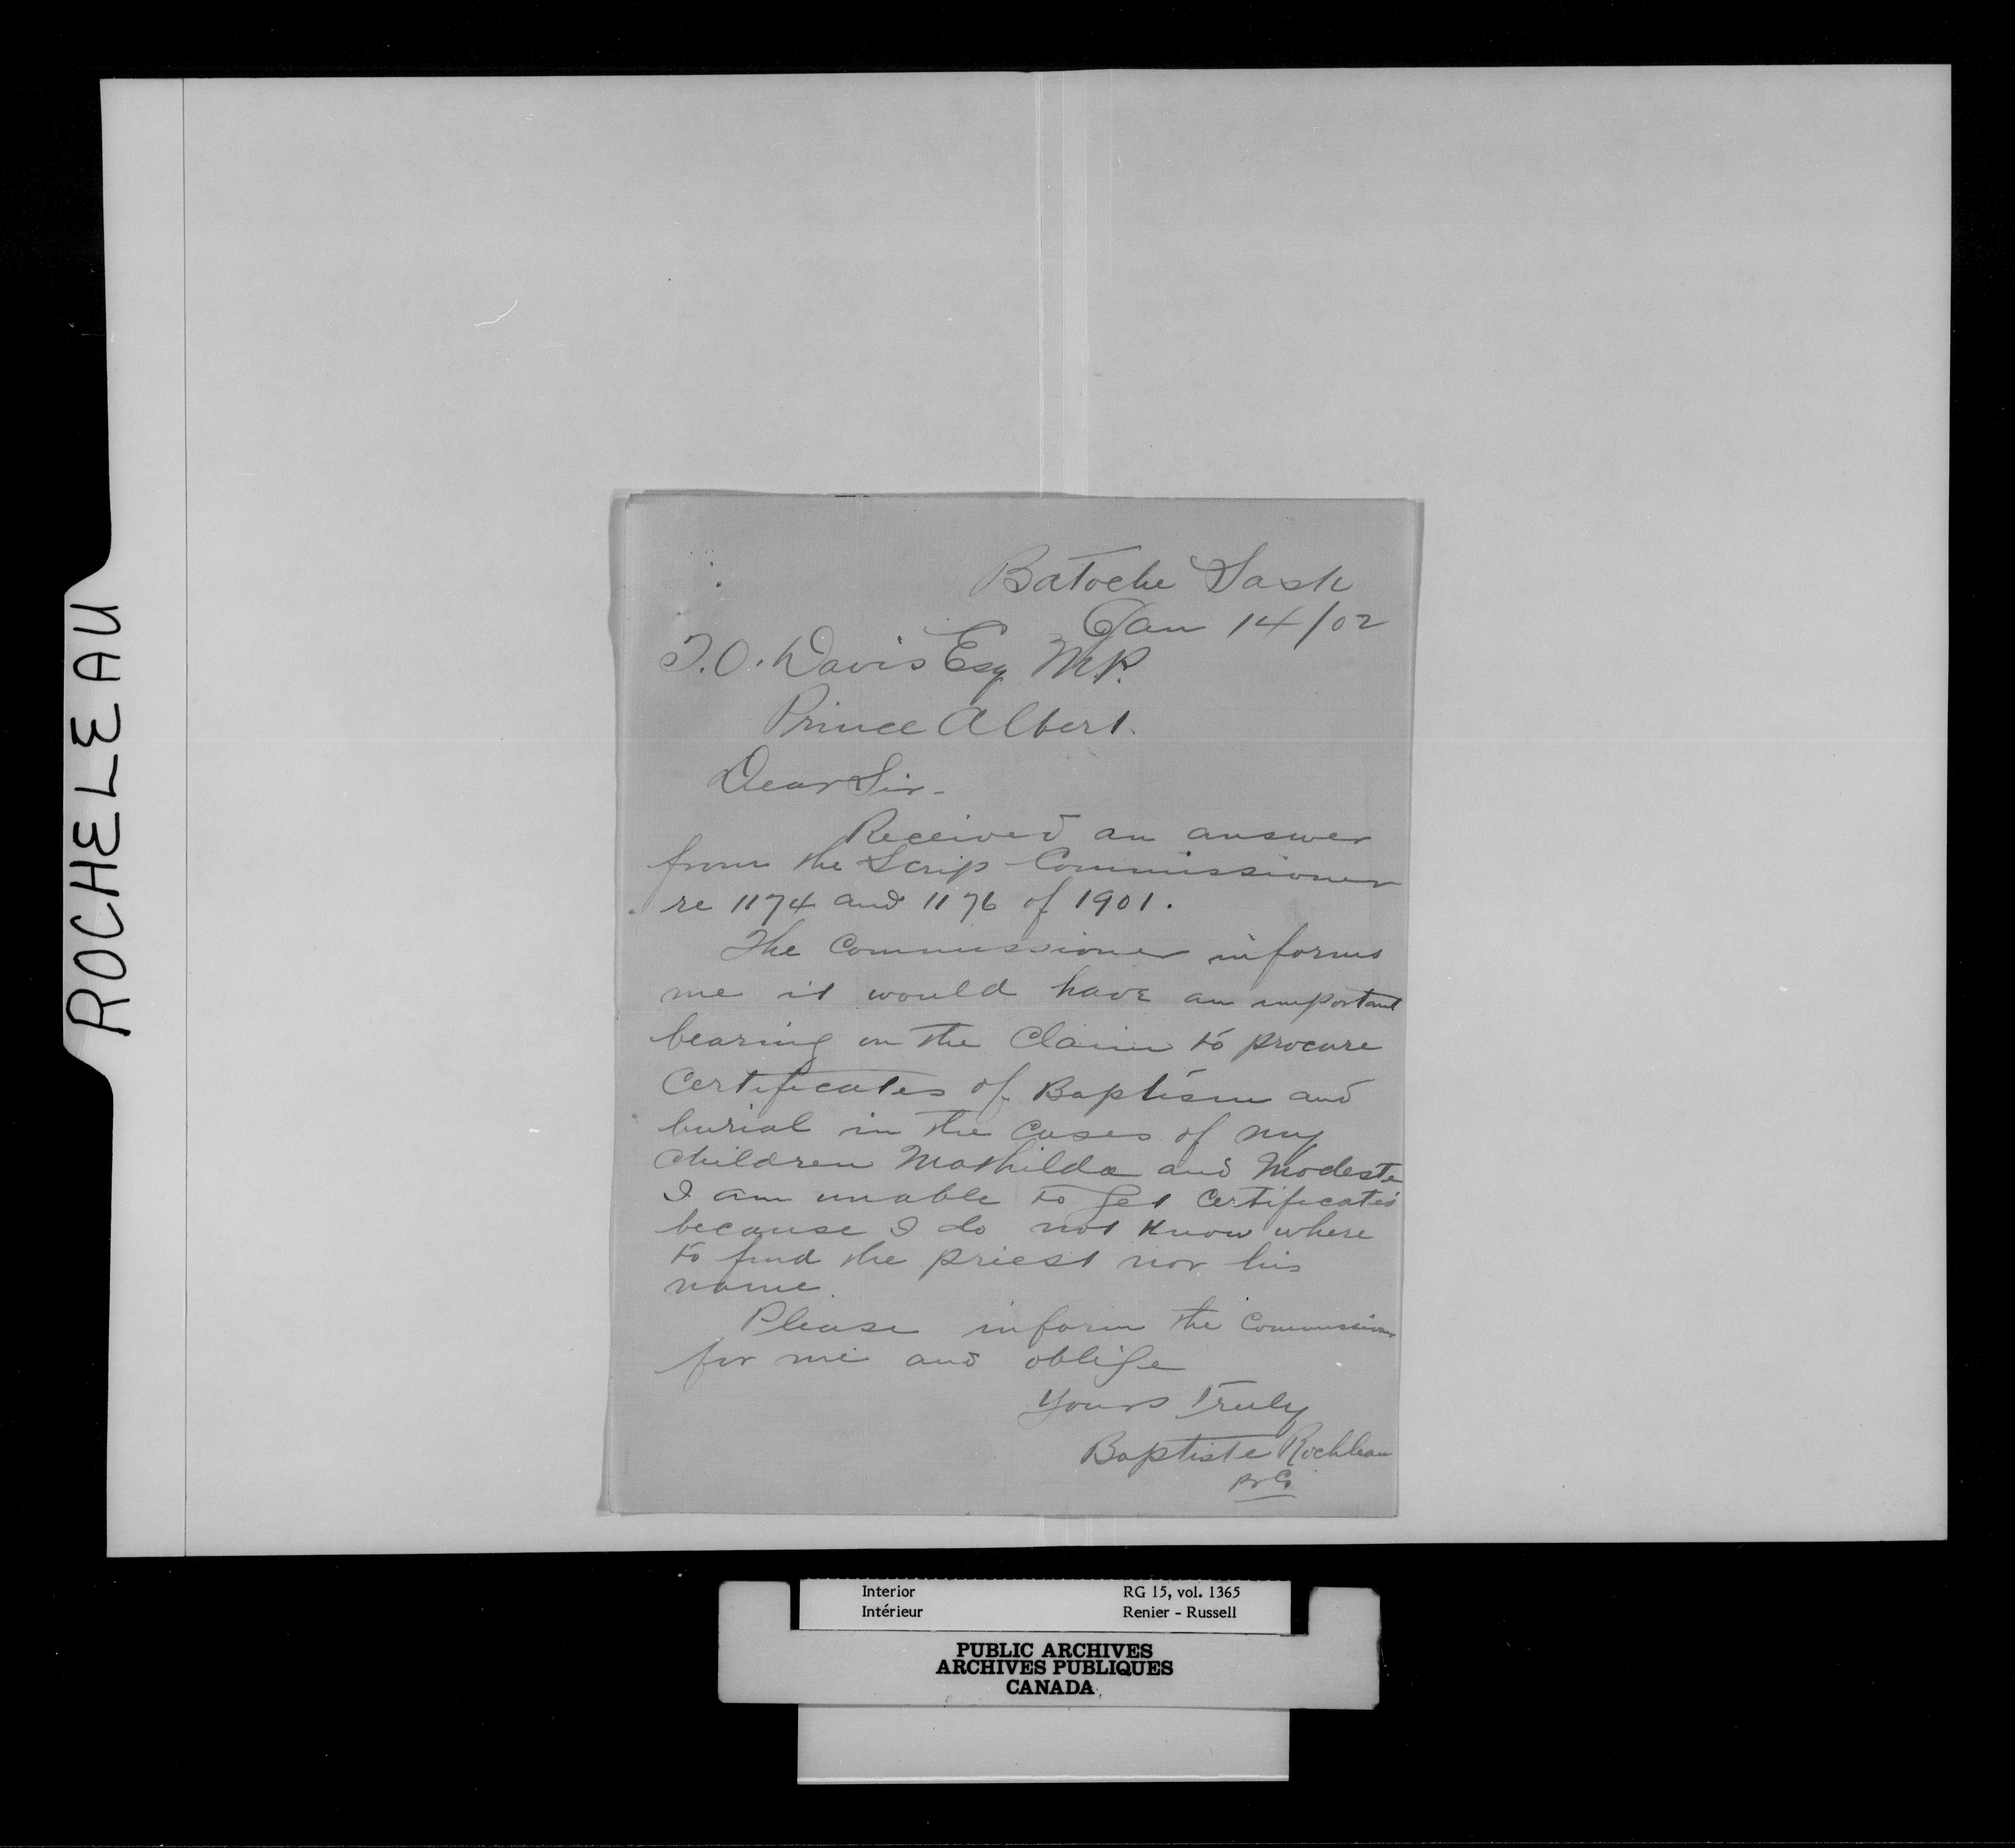 ROCHELEAU
Batoche Sask
Jan 14/02
T.O. Davis Esq M.P.
Prince Albert.
Dear Sir -
Received an answer
from the Scrip Commissioner
re 1174 and 1176 of 1901.
The Commissioner informs
me it would have an important
bearing on the Claim to procure
Certificates of Baptism and
burial in the Cases of my
Children Mathilda and Modeste
I am unable to get Certificates
because I do not know where
to find the priest nor his
name.
Please inform the Commissioner
for me and oblige
Yours Truly
Baptiste Rochleau
pr G
Interior RG 15, vol. 1365
Intérieur Renier - Russell
PUBLIC ARCHIVES
ARCHIVES PUBLIQUES
CANADA